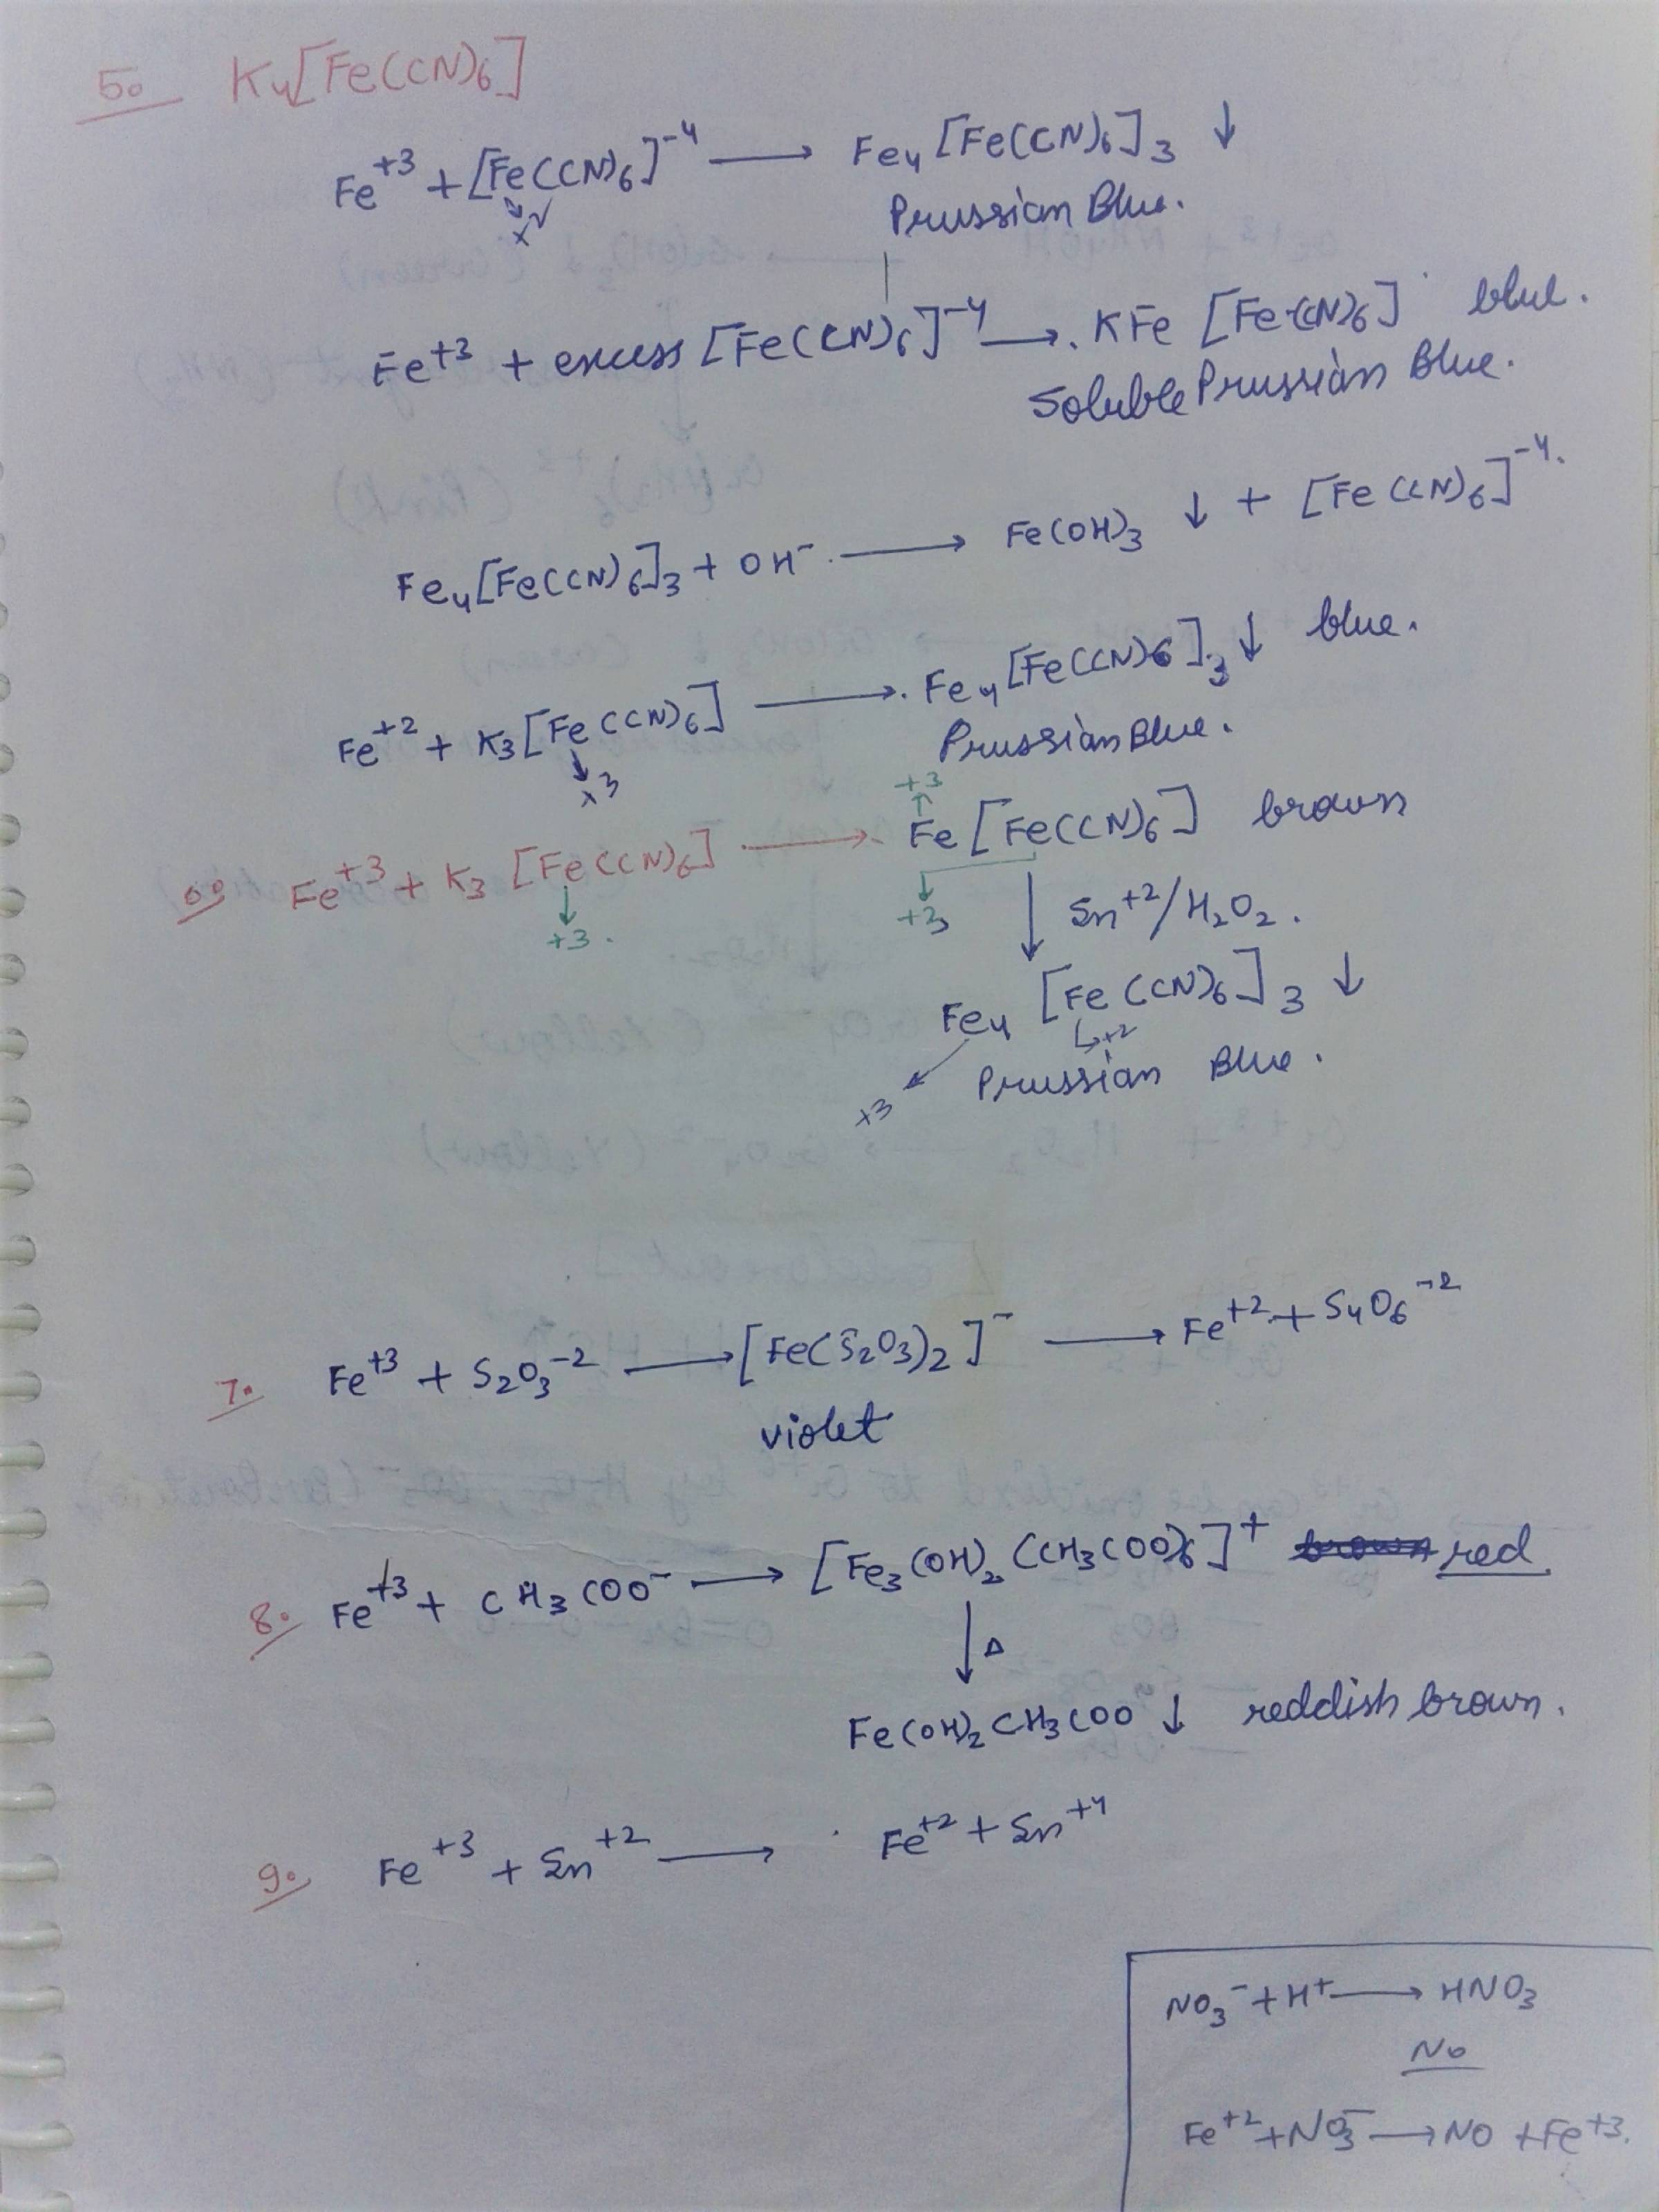 5. K4[Fe(CN)6]
Fe+3 + [Fe(CN)6]-4 ⟶ Fe4[Fe(CN)6]3 ↓
Prussian Blue.
Fe+3 + excess [Fe(CN)6]-4 ⟶ KFe [Fe(CN)6] blue.
Soluble Prussian Blue.
Fe4[Fe(CN)6]3 + OH- ⟶ Fe(OH)3 ↓ + [Fe(CN)6]-4.
Fe+2 + K3[Fe(CN)6] ⟶ Fe4[Fe(CN)6]3 ↓ blue.
+3
Prussian Blue.
+3
6. Fe+3 + K3[Fe(CN)6] ⟶ Fe[Fe(CN)6] brown
+3.
+3
↓ Sn+2/H2O2.
Fe4[Fe(CN)6]3 ↓
+2
+3
Prussian Blue.
7. Fe+3 + S2O3-2 ⟶ [Fe(S2O3)2]- ⟶ Fe+2 + S4O6-2
violet
8. Fe+3 + CH3COO- ⟶ [Fe3(OH)2(CH3COO)6]+ brown red.
↓ Δ
Fe(OH)2CH3COO ↓ reddish brown.
9. Fe+3 + Sn+2 ⟶ Fe+2 + Sn+4
NO3- + H+ ⟶ HNO3
No
Fe+2 + NO3- ⟶ NO + Fe+3.